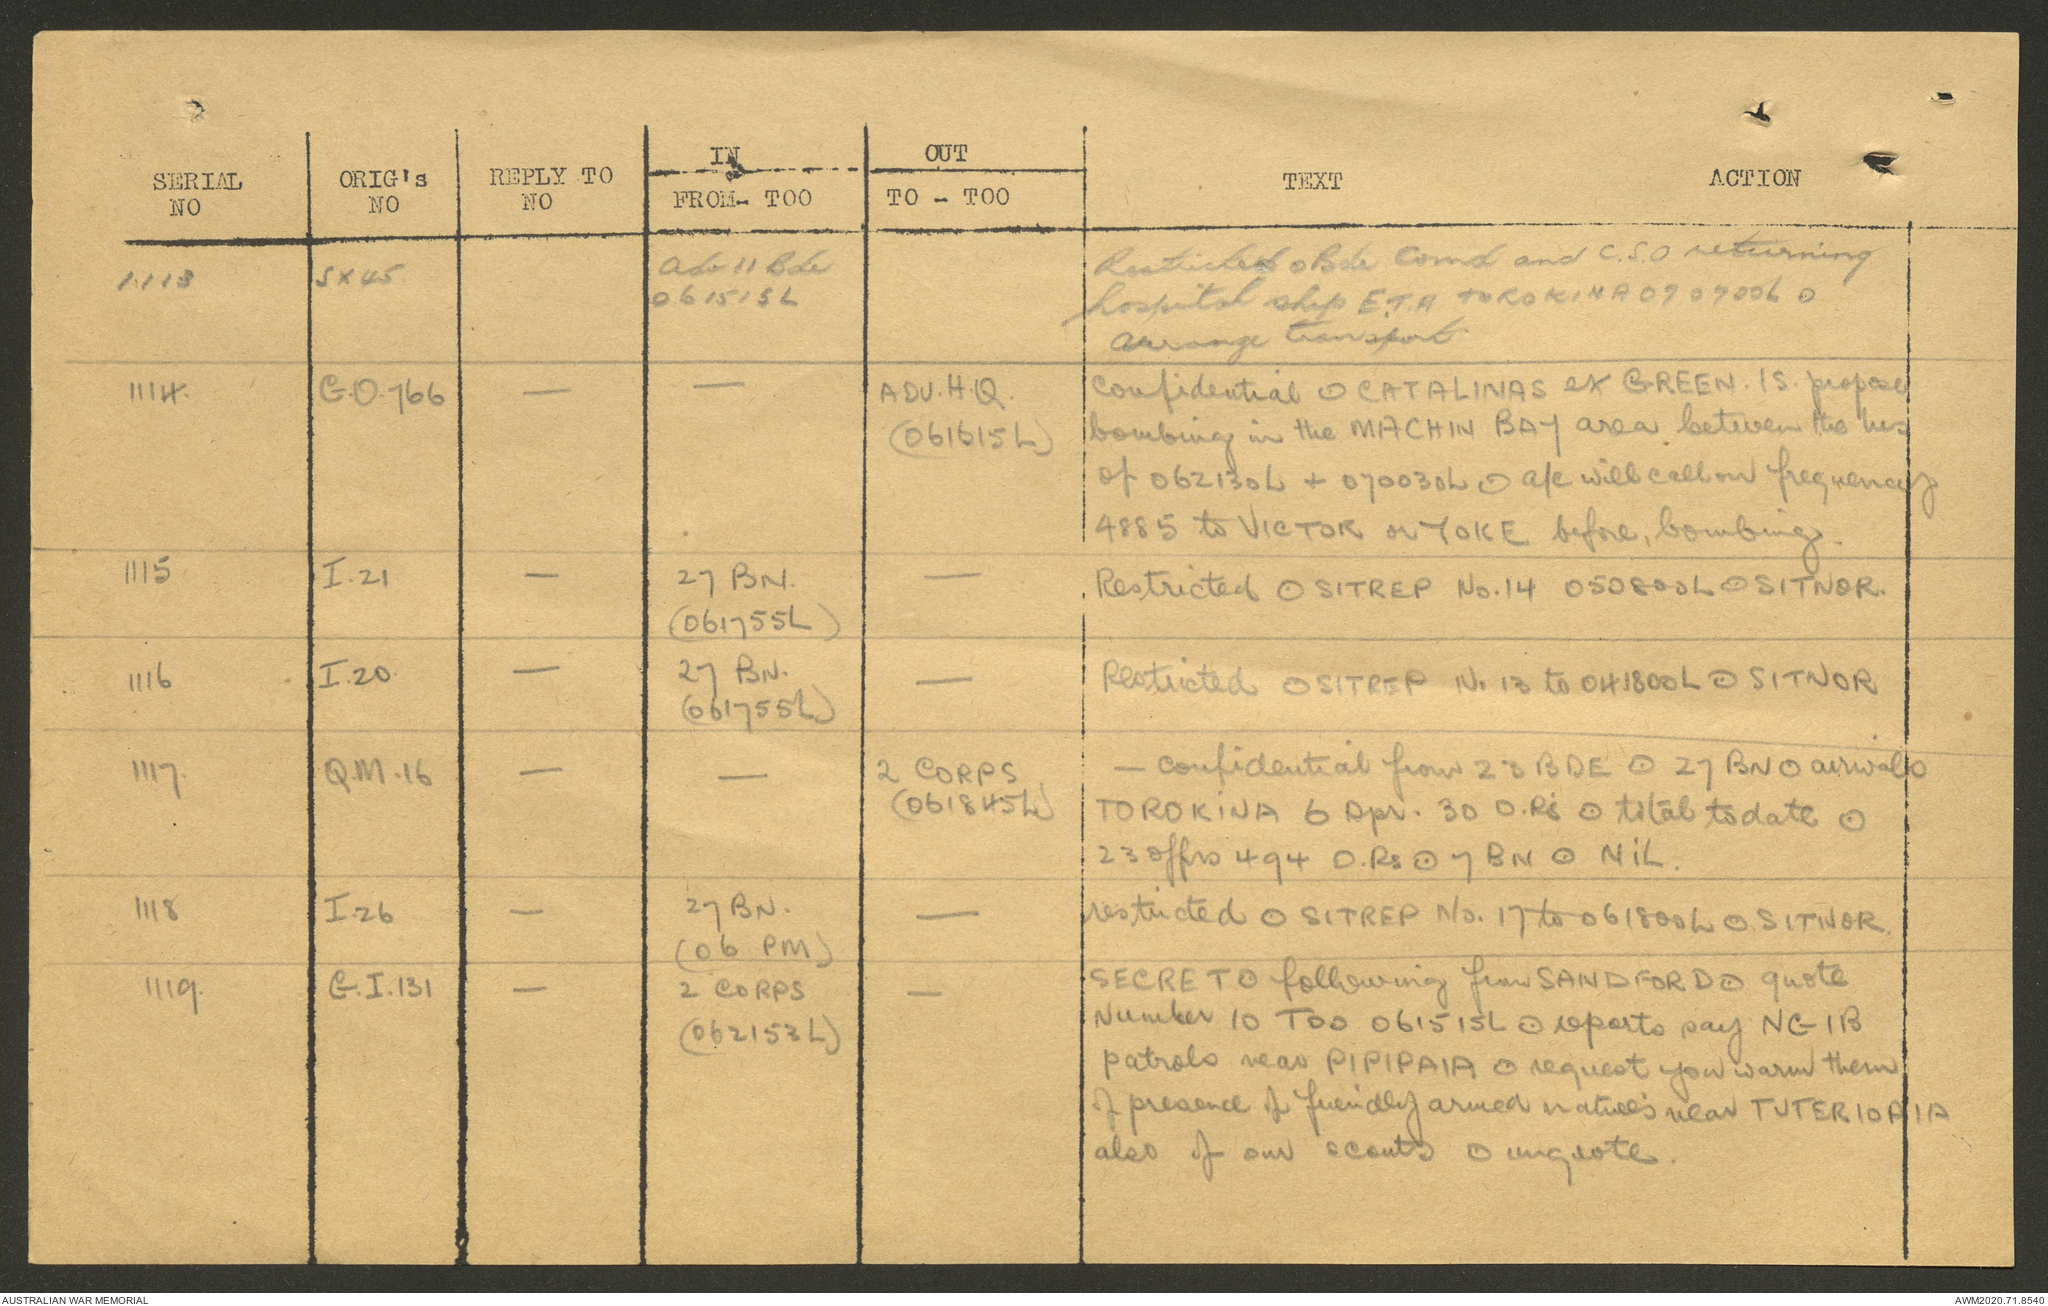 IN OUT
SERIAL ORIG's REPLY TO TEXT ACTION
NO NO NO FROM- TOO TO - TOO
1113 SX45 Adv 11 Bde Restricted ⊙ Bde Comd and C.S.O returning
061515L hospital ship E.T.A TOROKINA 070700L ⊙
arrange transport
1114. G.O.766 — — ADV.H.Q. Confidential ⊙ CATALINAS ex GREEN.IS. propose
(061615L) bombing in the MACHIN BAY area between the hrs
of 062130L + 070030L ⊙ a/c will call on frequency
4885 to VICTOR or YOKE before bombing.
1115 I.21 — 27 BN. — Restricted ⊙ SITREP No.14 050800L ⊙ SITNOR.
(061755L)
1116 I.20. — 27 BN. — Restricted ⊙ SITREP No 13 to 041800L ⊙ SITNOR
(061755L)
1117. Q.M.16 — — 2 CORPS — Confidential from 23 BDE ⊙ 27 BN ⊙ arrivals
(061845L) TOROKINA 6 Apr. 30 O.Rs ⊙ total to date ⊙
23 offrs 494 O.Rs ⊙ 7 BN ⊙ NIL.
1118 I.26 — 27 BN. — restricted ⊙ SITREP No. 17 to 061800L ⊙ SITNOR.
(06 PM)
1119. G.I.131 — 2 CORPS — SECRET ⊙ following from SANDFORD ⊙ quote
(062153L) Number 10 TOO 061515L ⊙ reports say NGIB
patrols near PIPIPAIA ⊙ request you warn them
of presence of friendly armed natives near TUTERIOPAIA
also of our scouts ⊙ unquote.
AUSTRALIAN WAR MEMORIAL AWM2020.71.8540